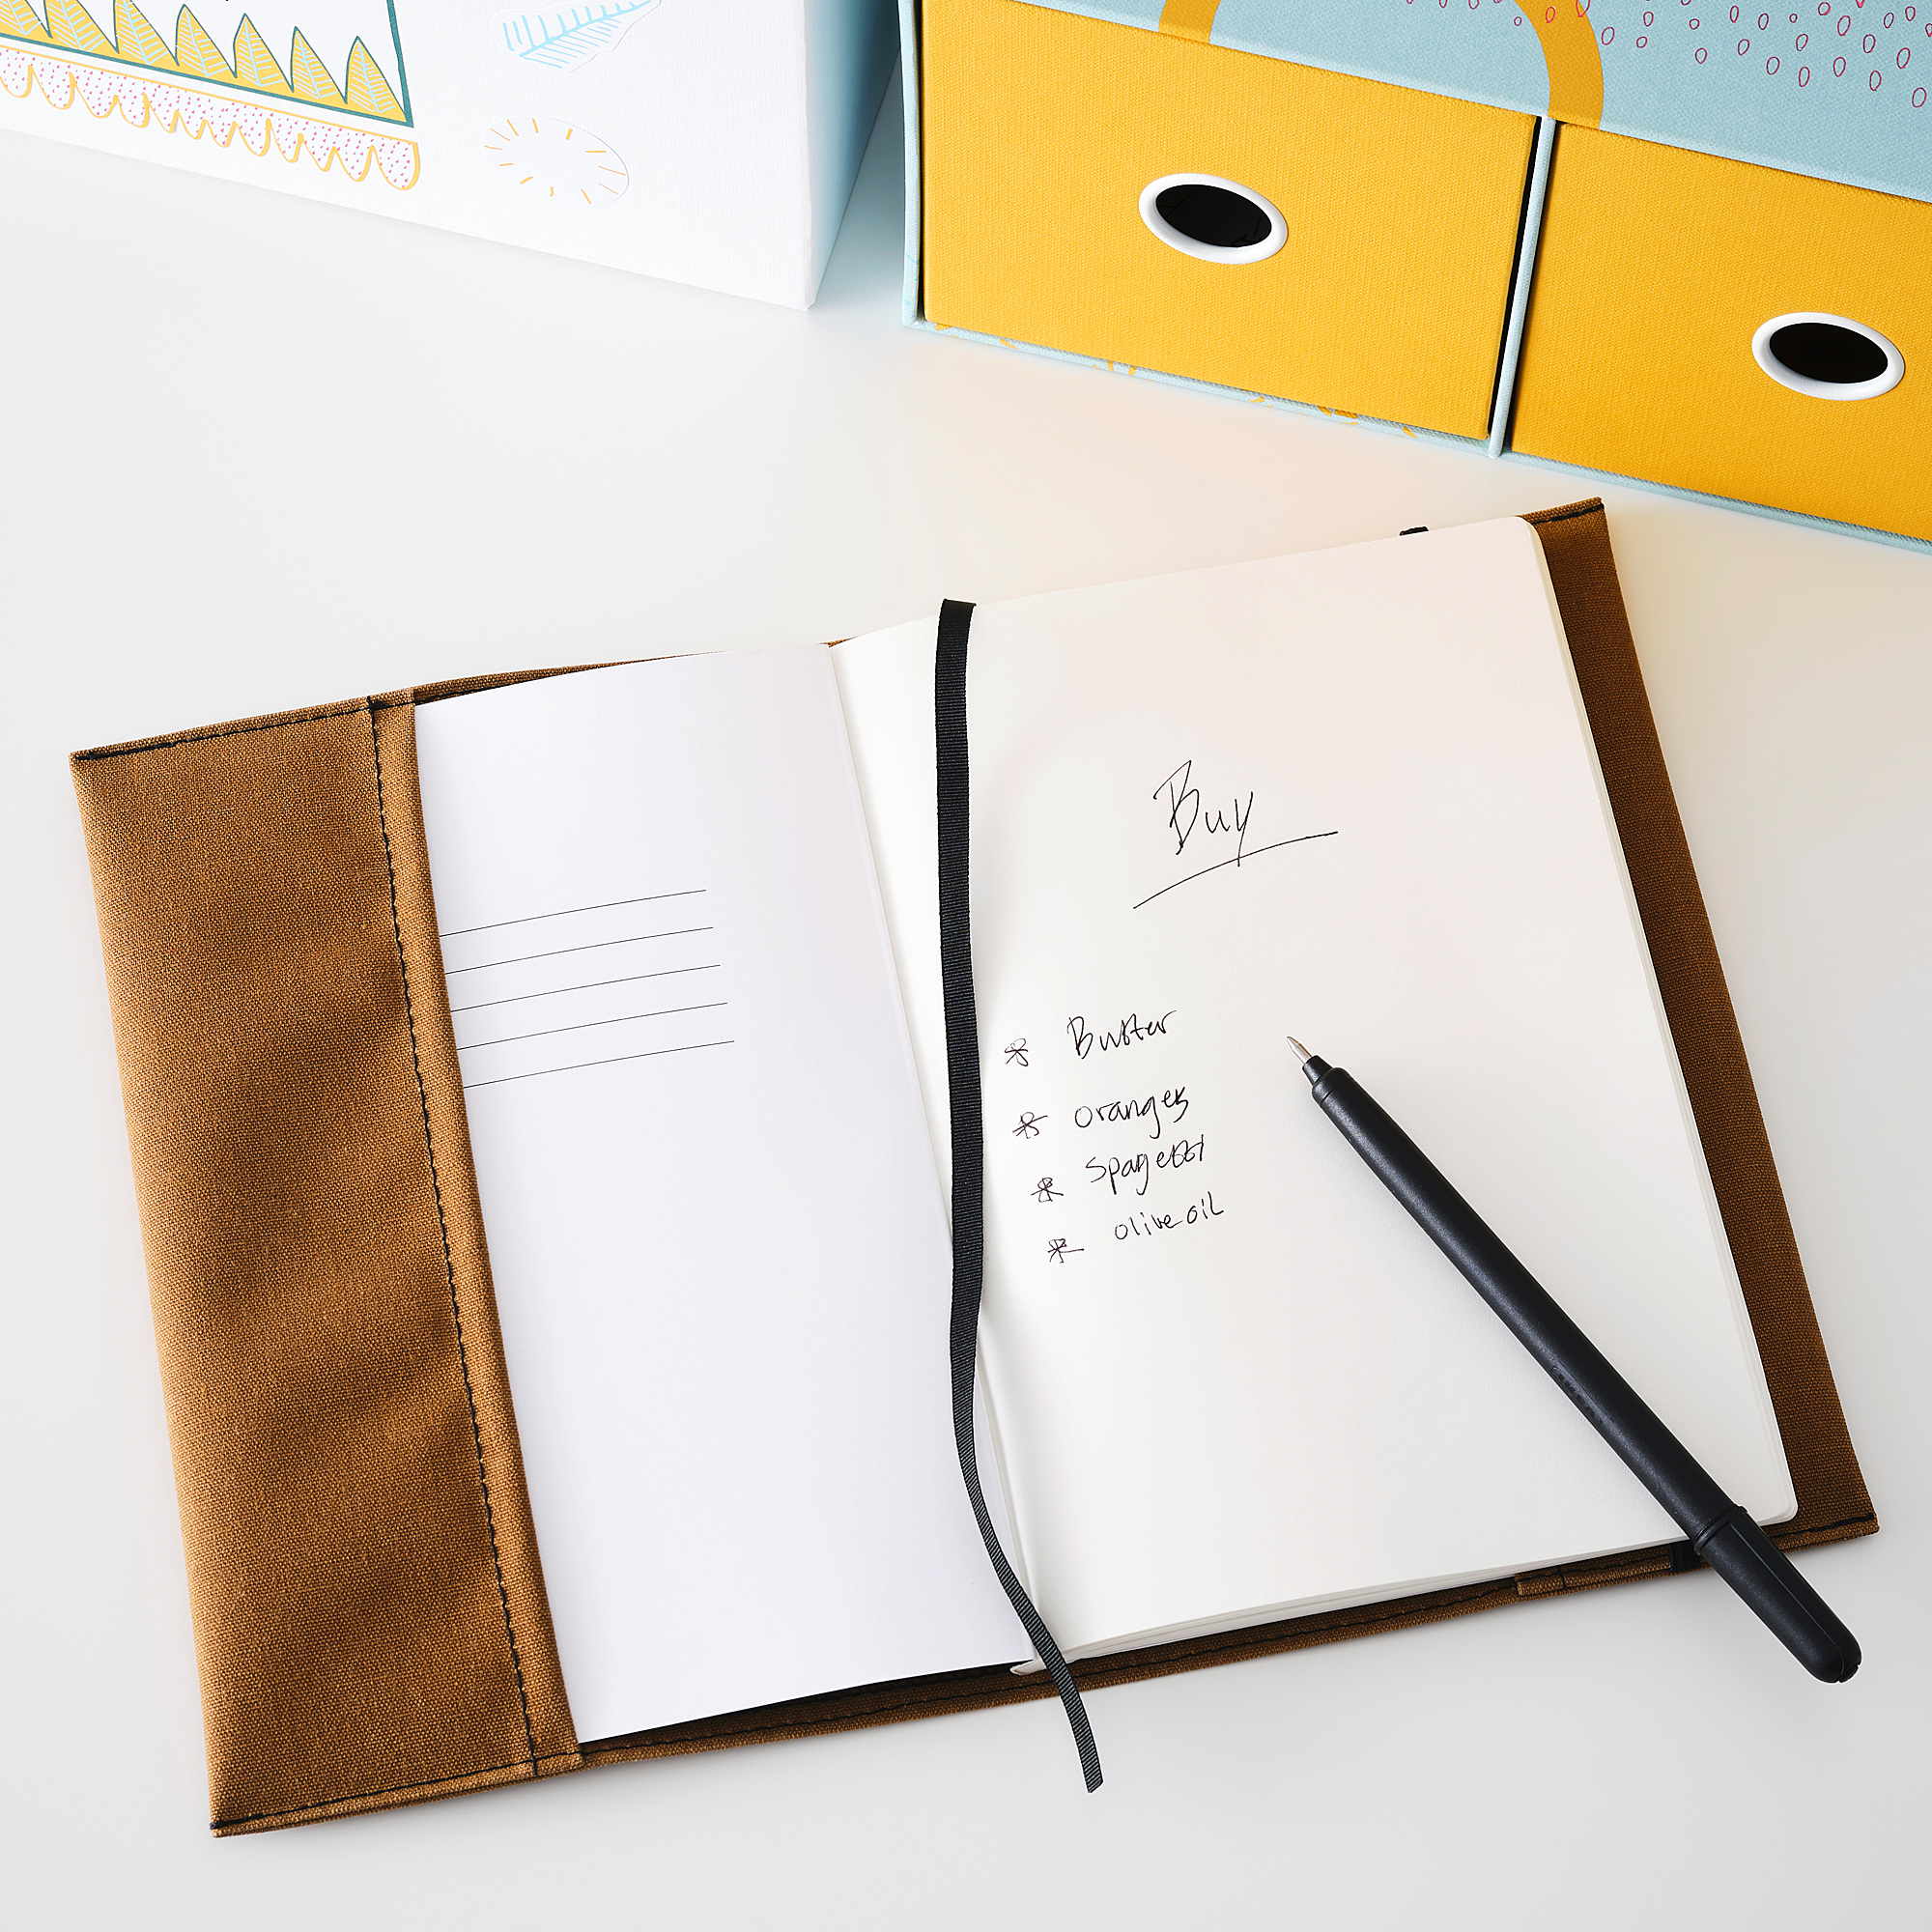 Buy
* Butter
* oranges
* spagetti
* olive oil